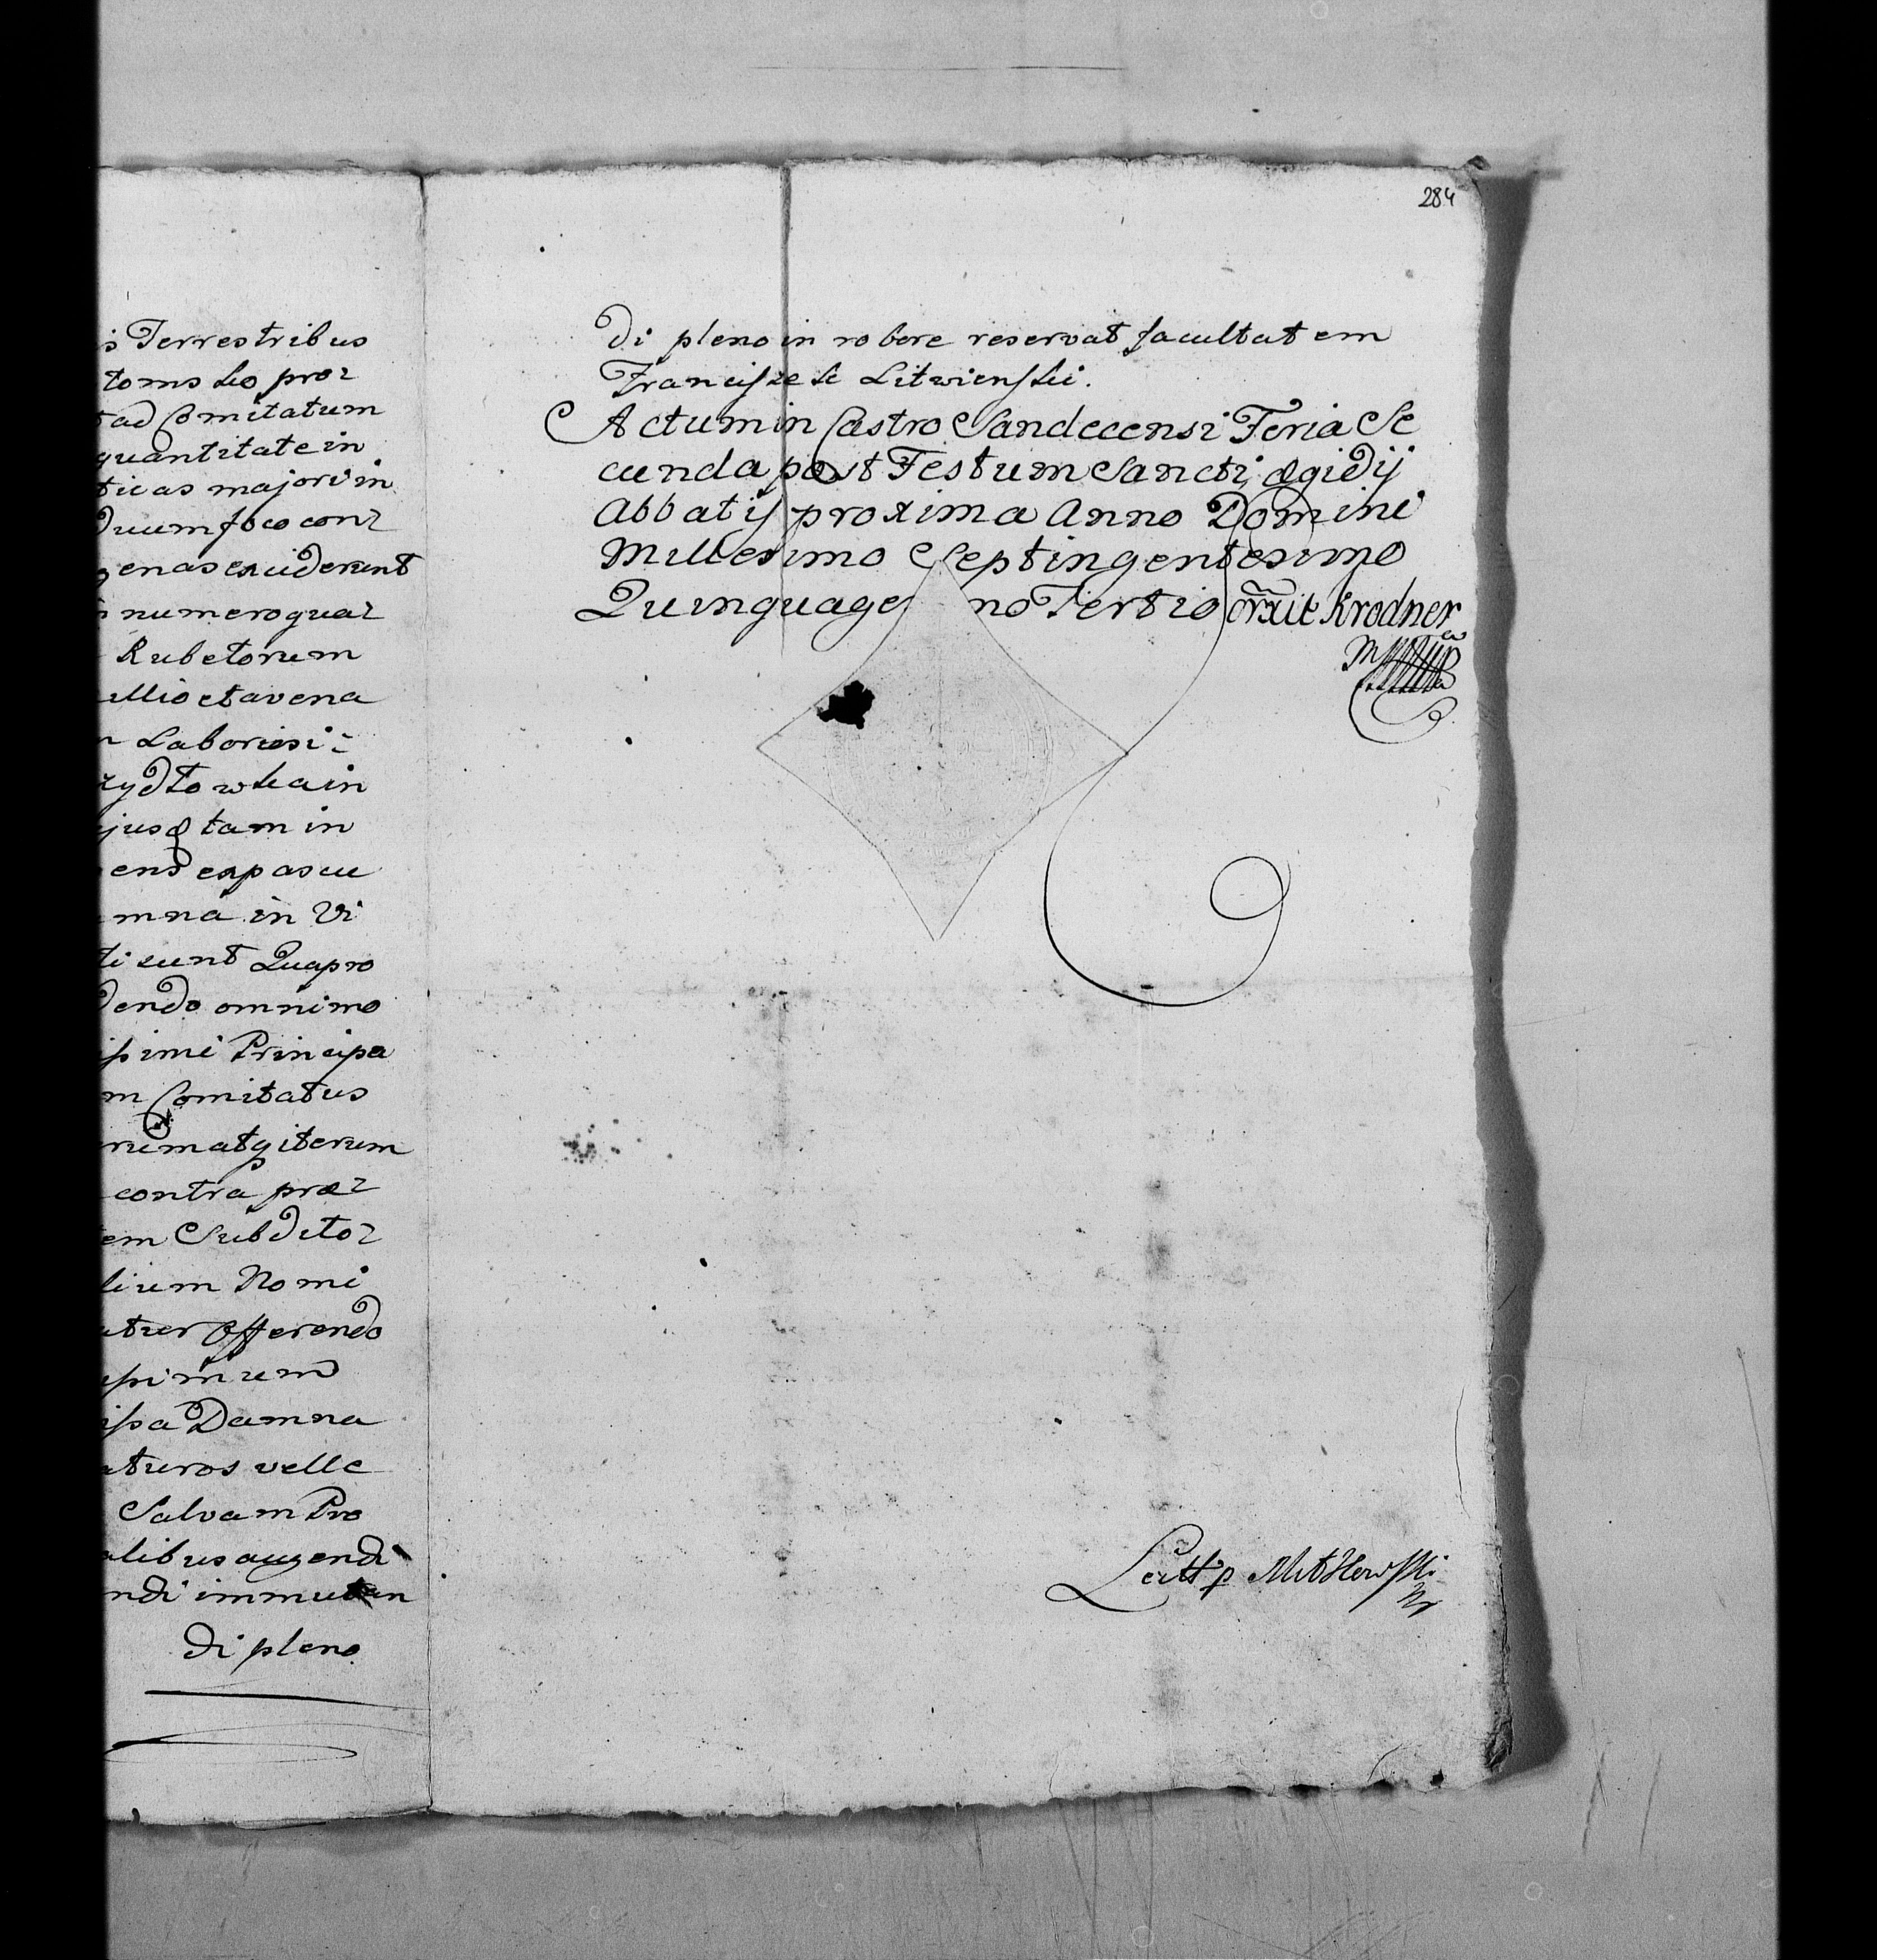 is Terrestribus
toms ko pro=
ad Comitatum
quantitate in
ticas majori in
duum foco con=
genas exciderunt
numero qua=
Rubetorum
illio et avena
Laboriosi=
rydłowka in
ejusq tam in
end expascu
mna in Vi
ti sunt Quapro
dendo omnimo
issimi Principa
m Comitatus
rum atq iterum
contra præ=
em Subdito=
lium Nomi
atur Offerendo
issimum
ipsa Damna
aturos velle
Salvam Pro
alibus augendi
ndi immutan
di pleno
284
di pleno in robore reservat facultatem
Franciszek Litwienski.
Actum in Castro Sandecensi Feria Se
cunda post Festum Sancti Ægidij
Abbatis proxima Anno Domini
Millesimo Septingentesimo
Quinquage no Tertio Krodner
Lectt p